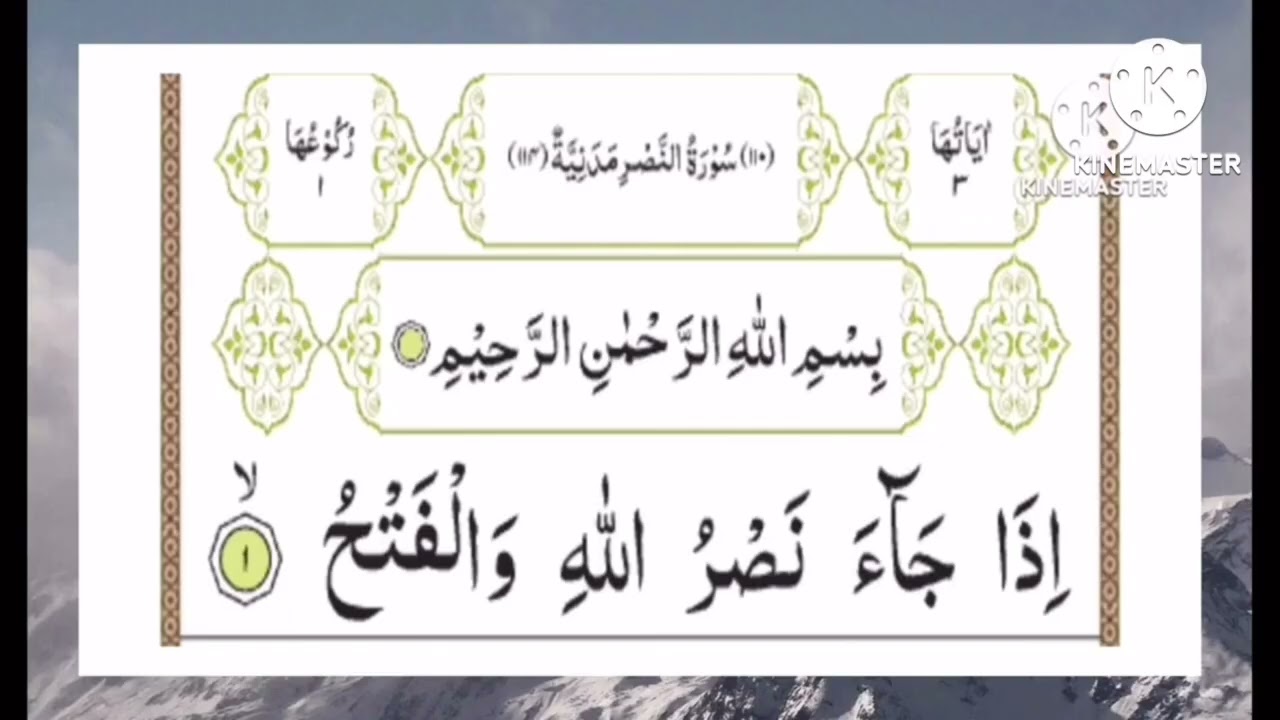 اٰيَاتُهَا ٣
(١١٠) سُوْرَةُ النَّصْرِ مَدَنِيَّةٌ (١١٤)
رُكُوْعُهَا ١
بِسْمِ اللّٰهِ الرَّحْمٰنِ الرَّحِيْمِ
اِذَا جَآءَ نَصْرُ اللّٰهِ وَالْفَتْحُ ۙ ١
KINEMASTER
KINEMASTER